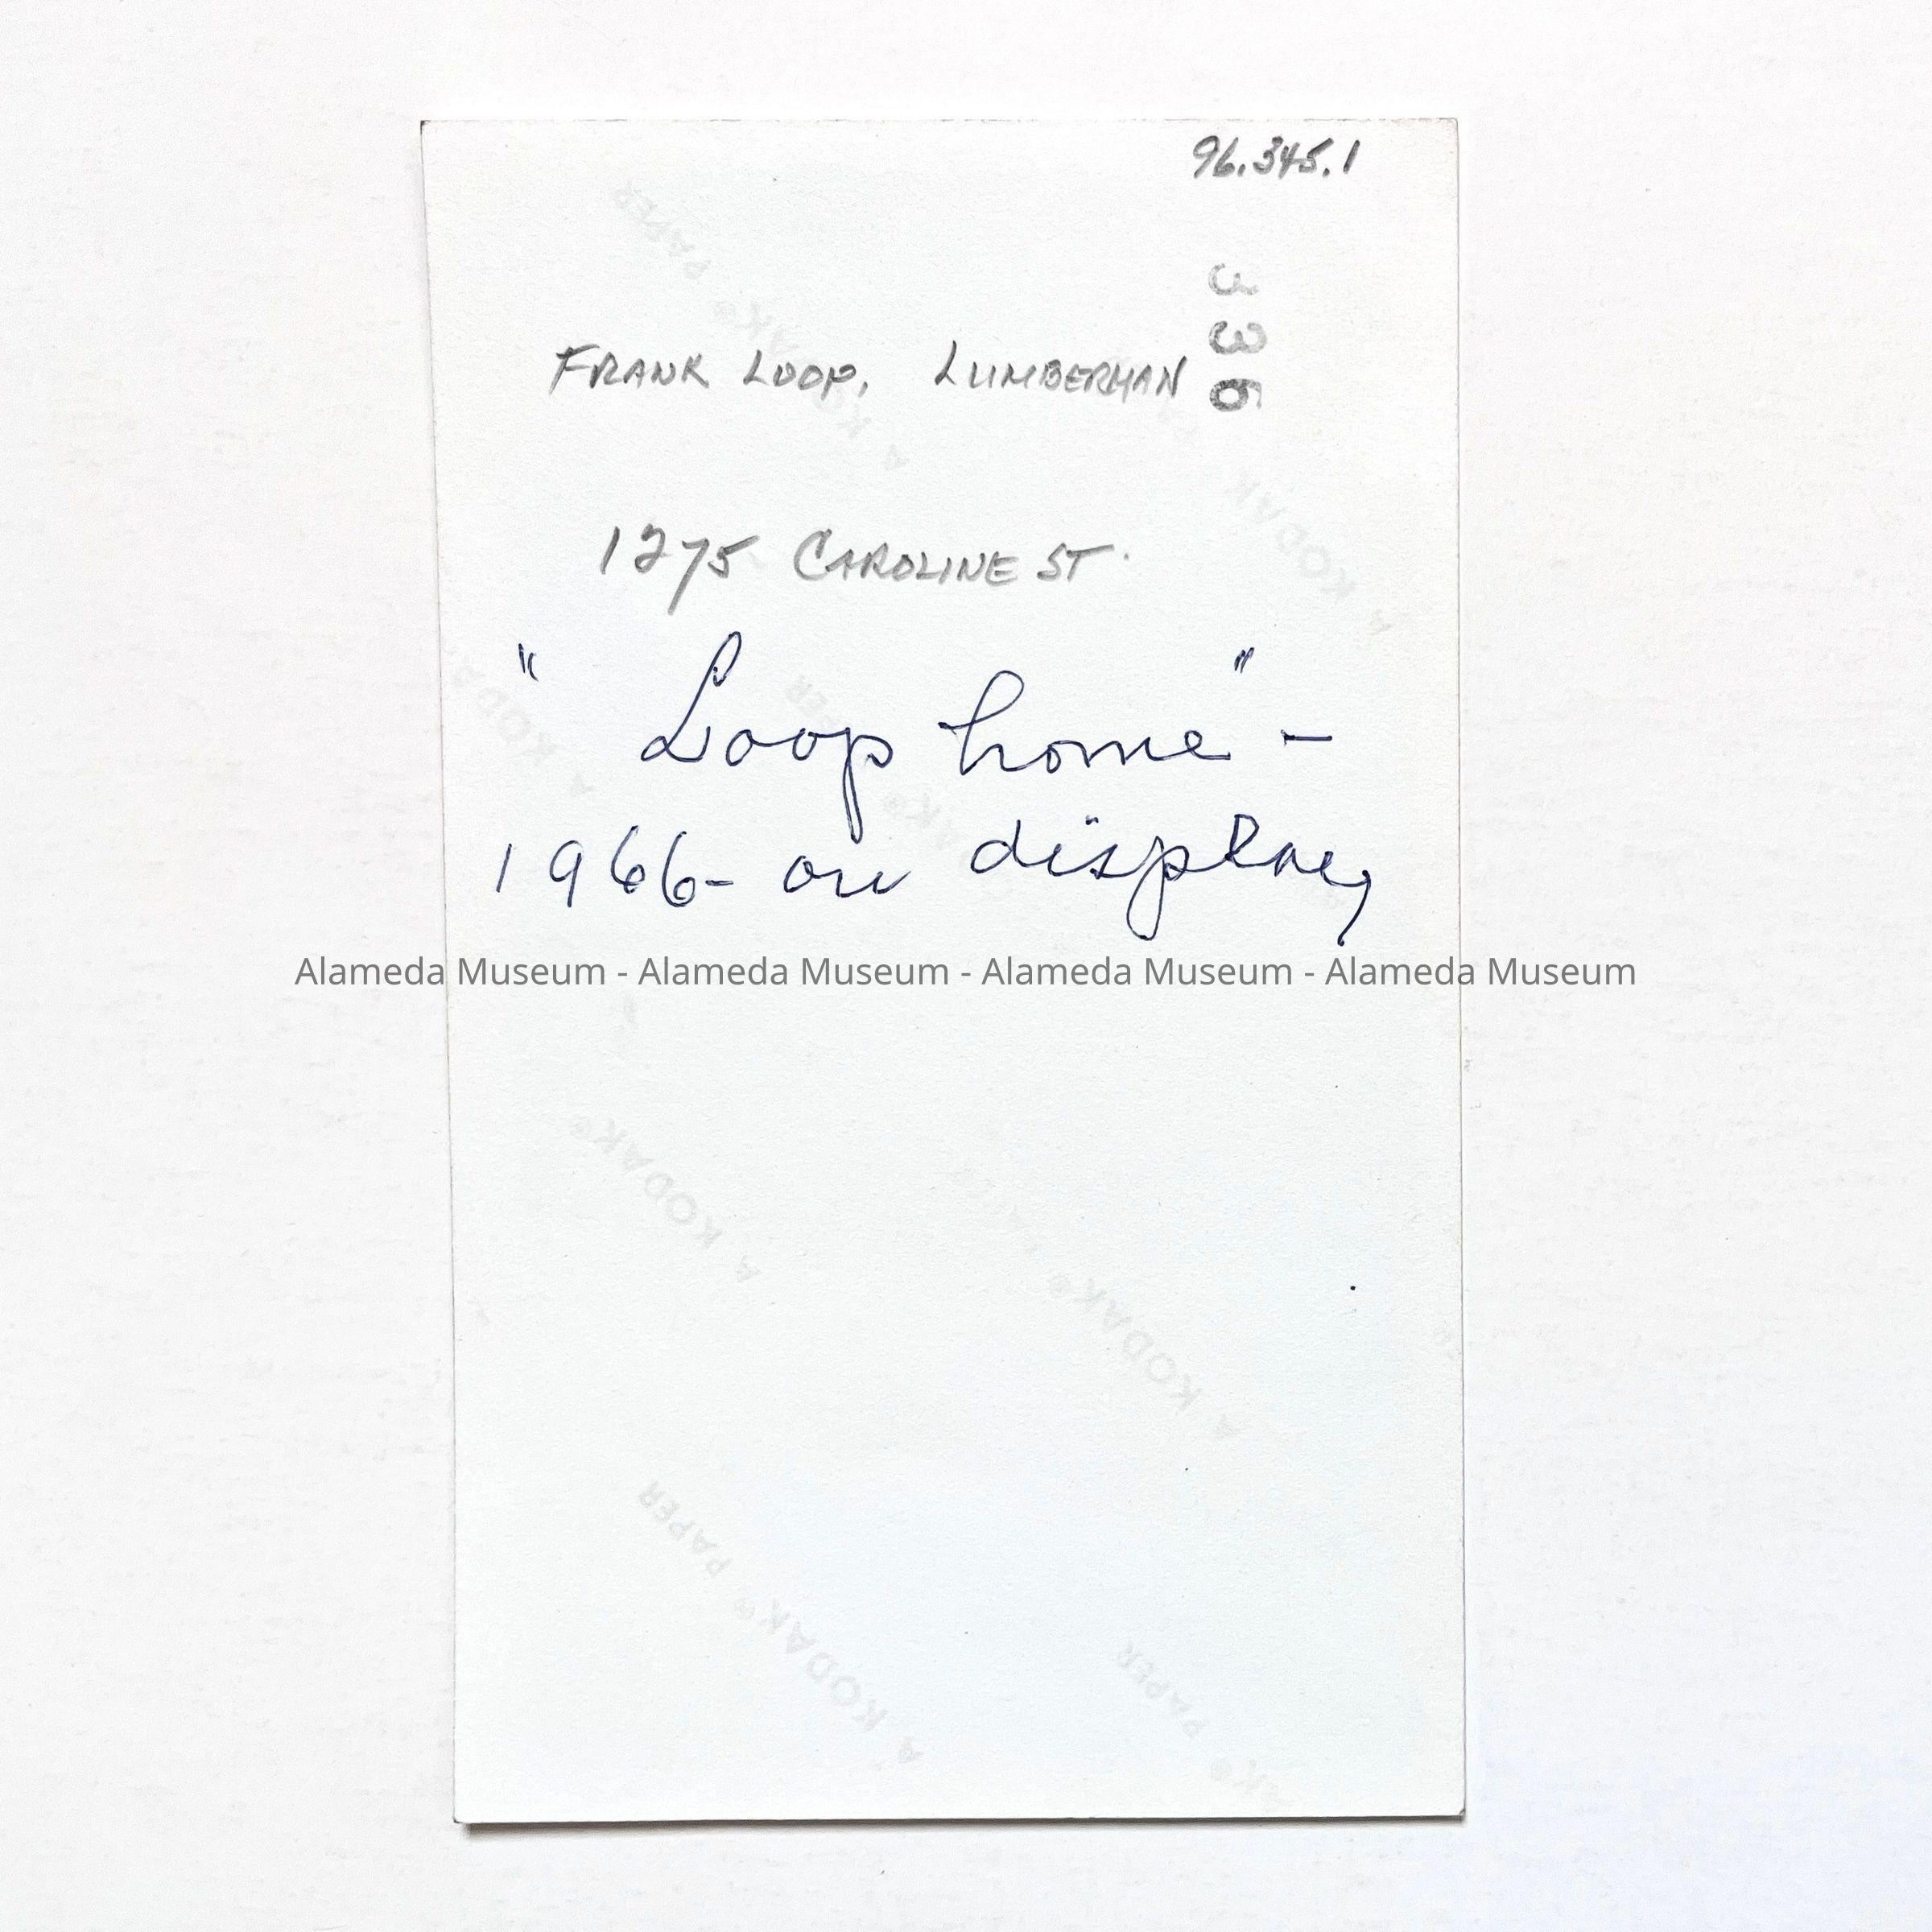 96.345.1
336
FRANK LOOP, LUMBERMAN
1275 CAROLINE ST.
" Loop home" -
1966- on display
Alameda Museum - Alameda Museum - Alameda Museum - Alameda Museum
PAPER
A KODAK®
A KODAK
A KODAK
PAPER
A KODAK®
A KODAK®
A KODAK® PAPER
PAPER